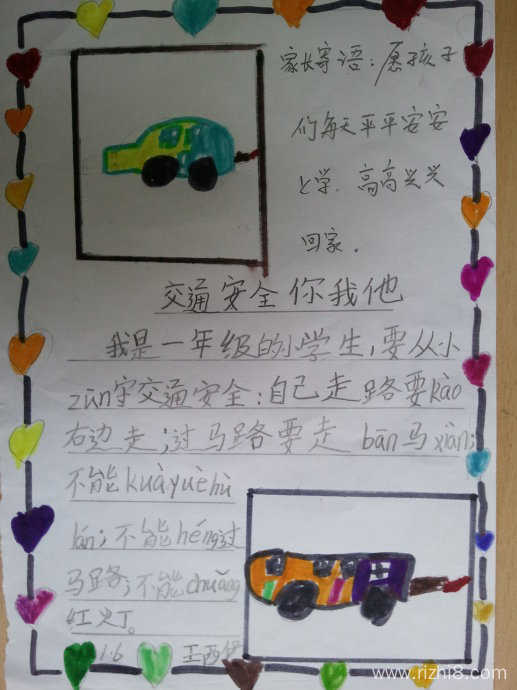 家长寄语:愿孩子
们每天平平安安
上学.高高兴兴
回家.
交通安全你我他
我是一年级的小学生,要从小
zūn守交通安全:自己走路要kào
右边走;过马路要走 bān马xiàn;
不能kuàyuèhù
lán;不能héng过
马路;不能chuǎng
红灯。
1.6
www.rizhi8.com